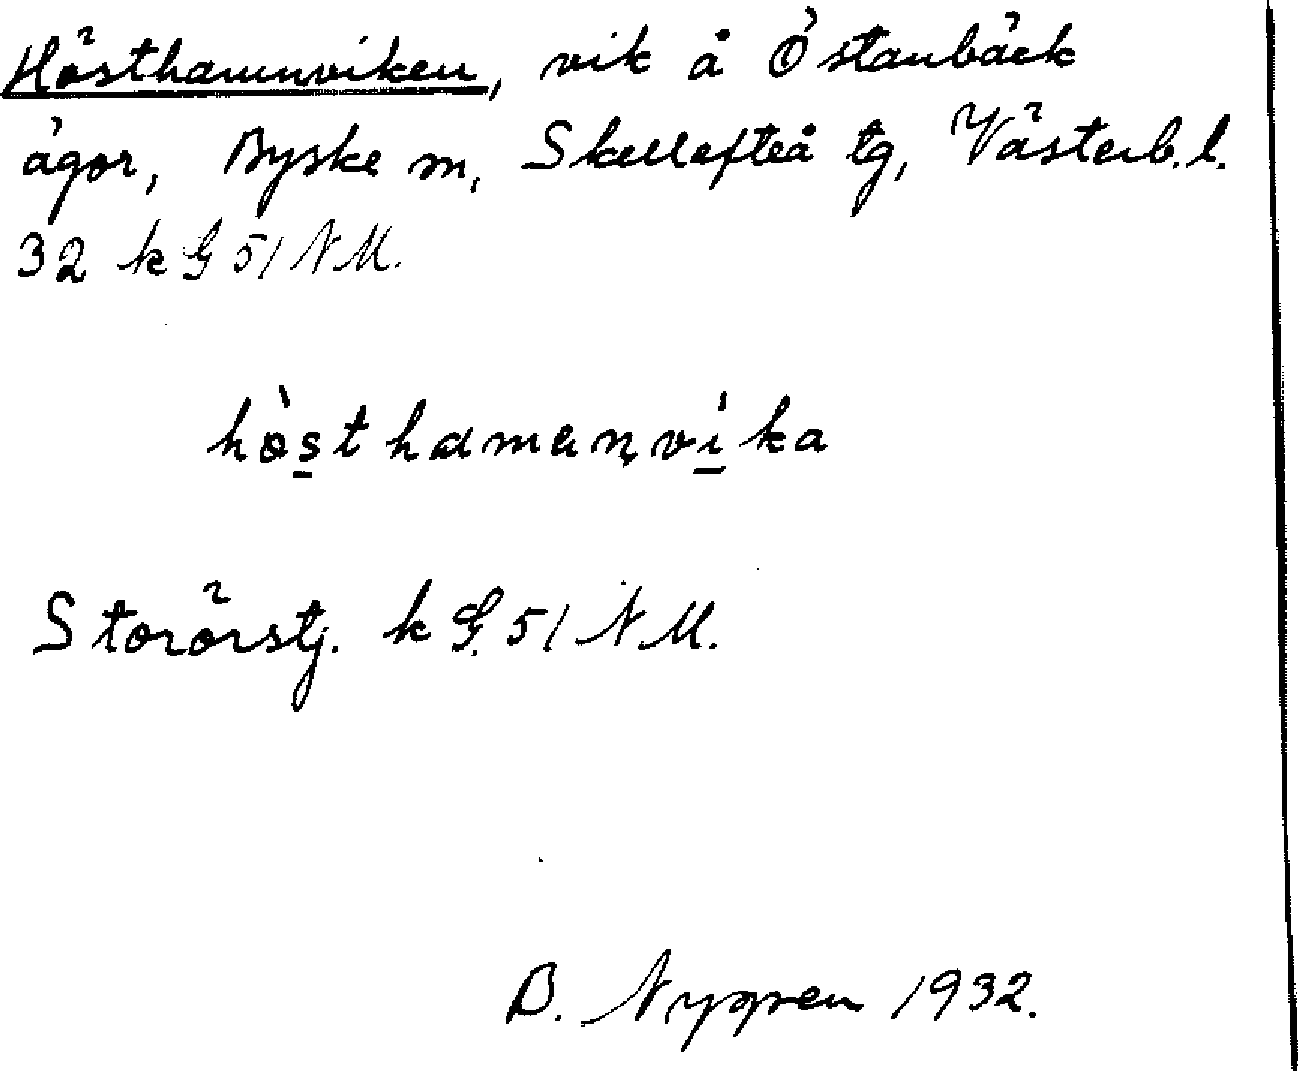 Hösthamnviken, vik å Östanbäck
ägor, Byske sn, Skellefteå tg, Västerb. l.
32 k G 51 N M.
hòsthamanvika
Storörstj. k G. 51 N M.
B. Nygren 1932.